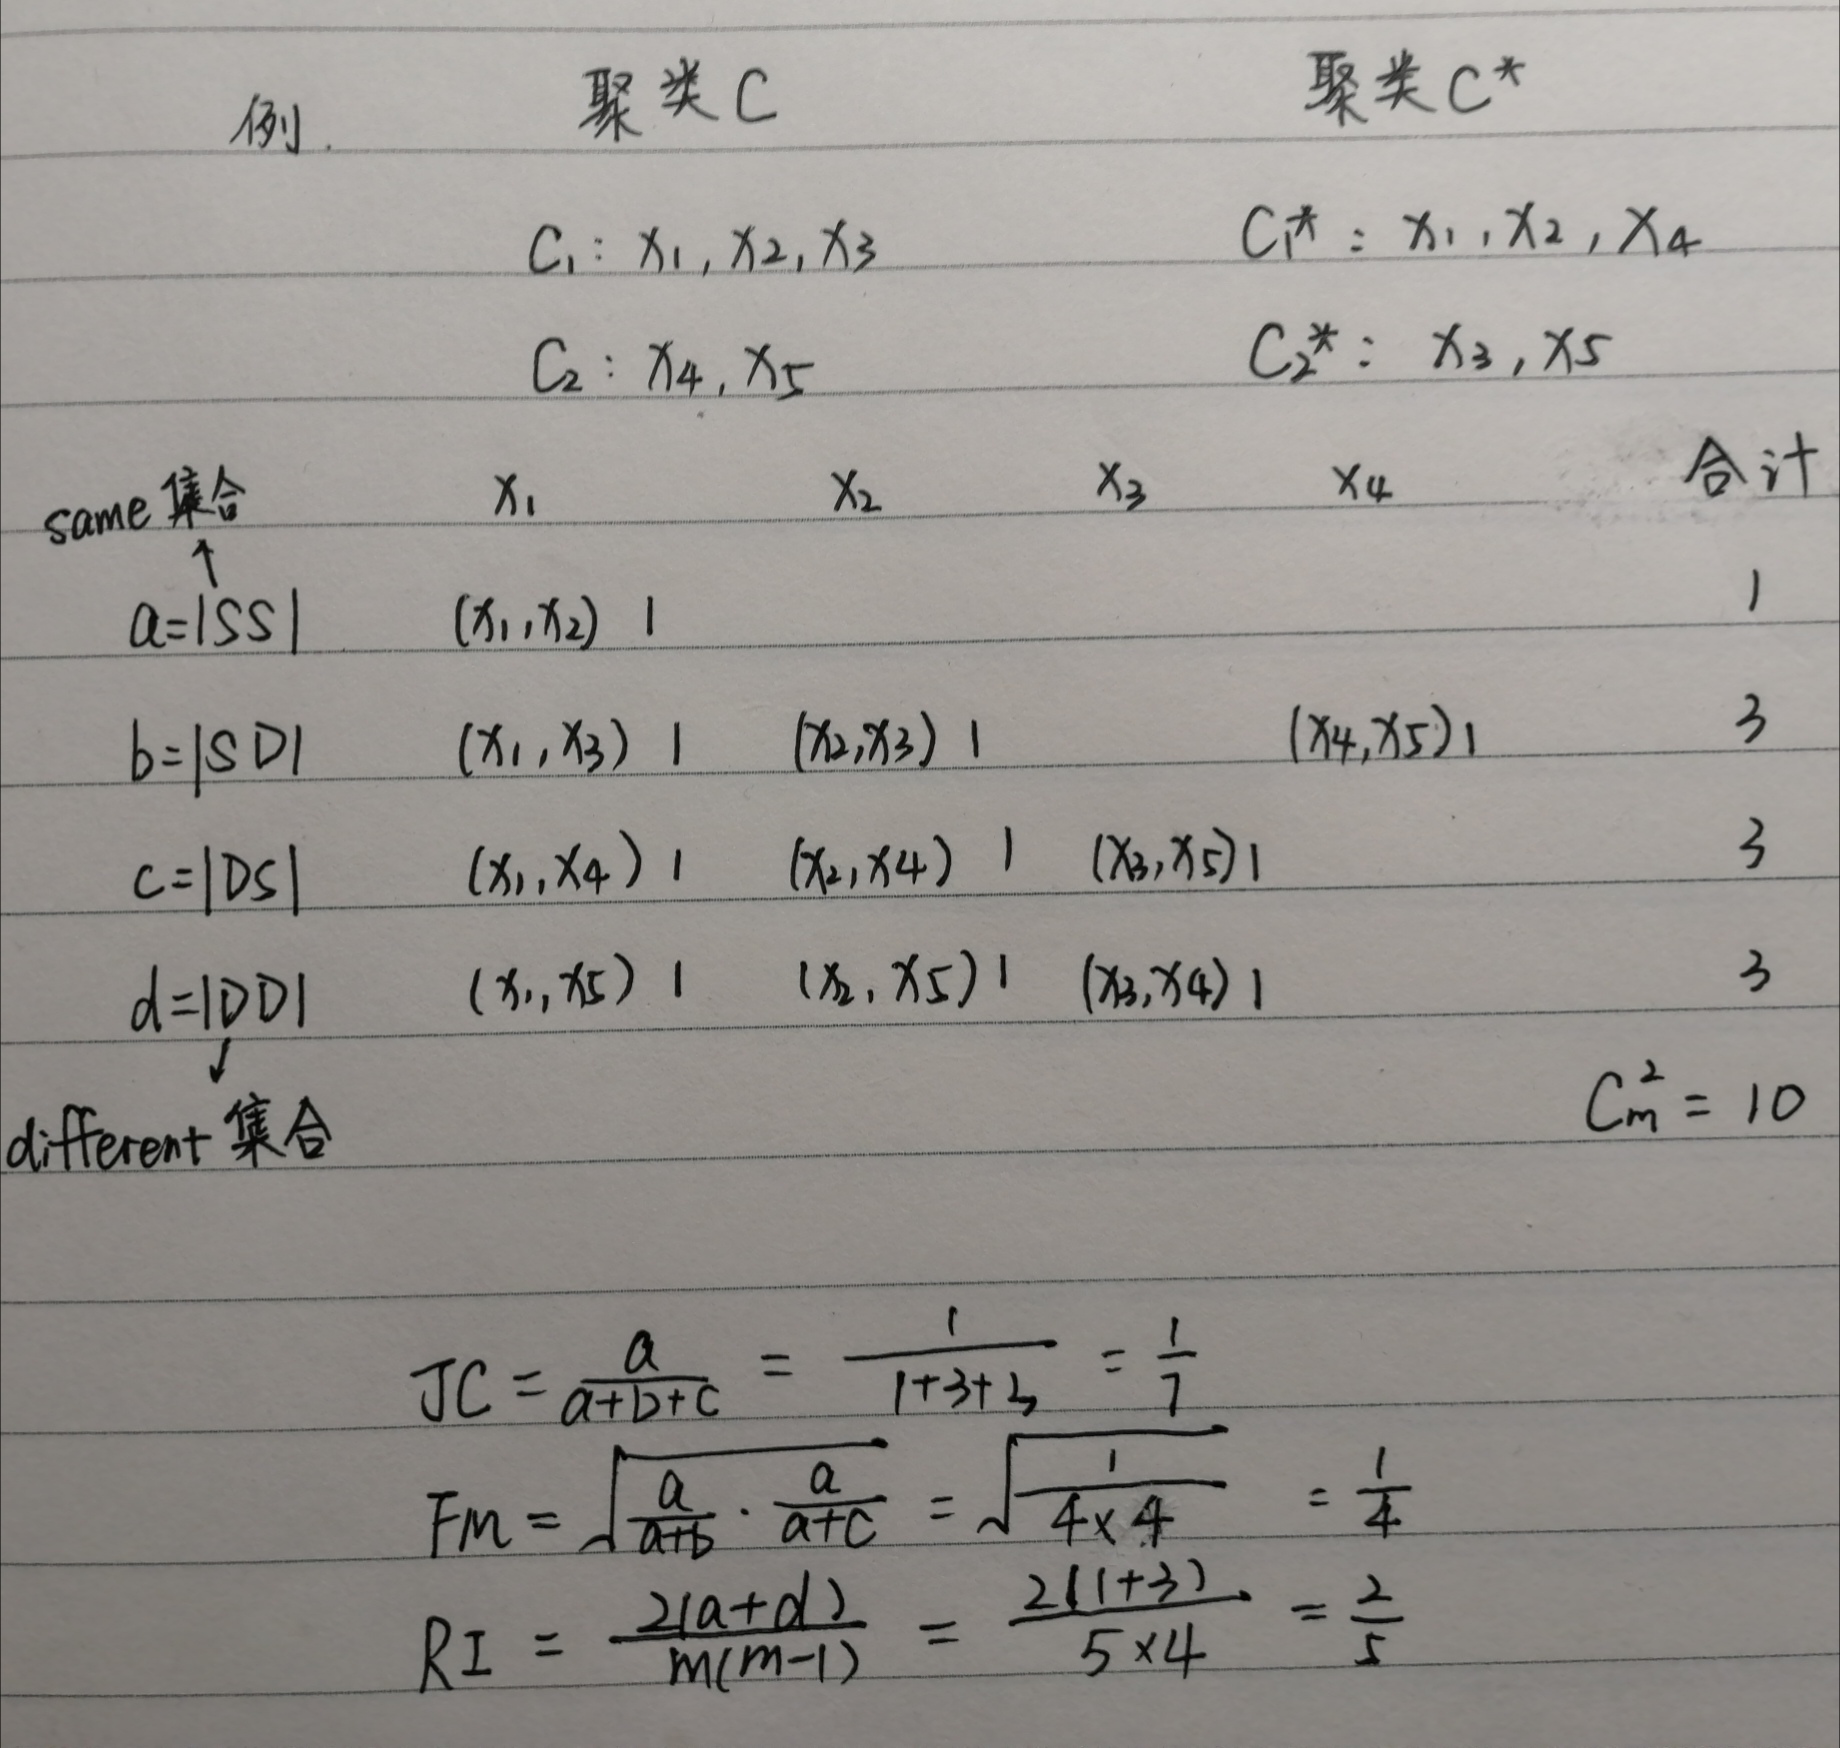 例. 聚类C 聚类C*
C₁: x₁, x₂, x₃ C₁*: x₁, x₂, x₄
C₂: x₄, x₅ C₂*: x₃, x₅
same集合 x₁ x₂ x₃ x₄ 合计
↑
a=|SS| (x₁,x₂) 1 1
b=|SD| (x₁,x₃) 1 (x₂,x₃) 1 (x₄,x₅) 1 3
c=|DS| (x₁,x₄) 1 (x₂,x₄) 1 (x₃,x₅) 1 3
d=|DD| (x₁,x₅) 1 (x₂,x₅) 1 (x₃,x₄) 1 3
↓
different集合 C²ₘ = 10
JC = a/(a+b+c) = 1/(1+3+3) = 1/7
FM = √(a/(a+b) · a/(a+c)) = √(1/(4×4)) = 1/4
RI = 2(a+d)/m(m-1) = 2(1+3)/5×4 = 2/5